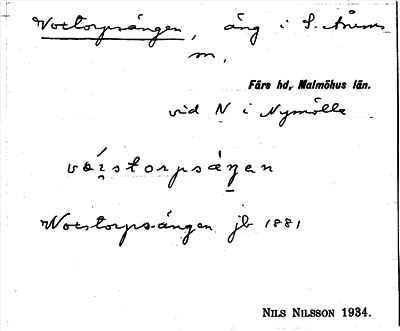 Wostorpsängen, äng i S. Åsums
m,
Färs hd, Malmöhus län.
vid N i Nymölla
Worstorps-ängen jb 1881
NILS NILSSON 1934.